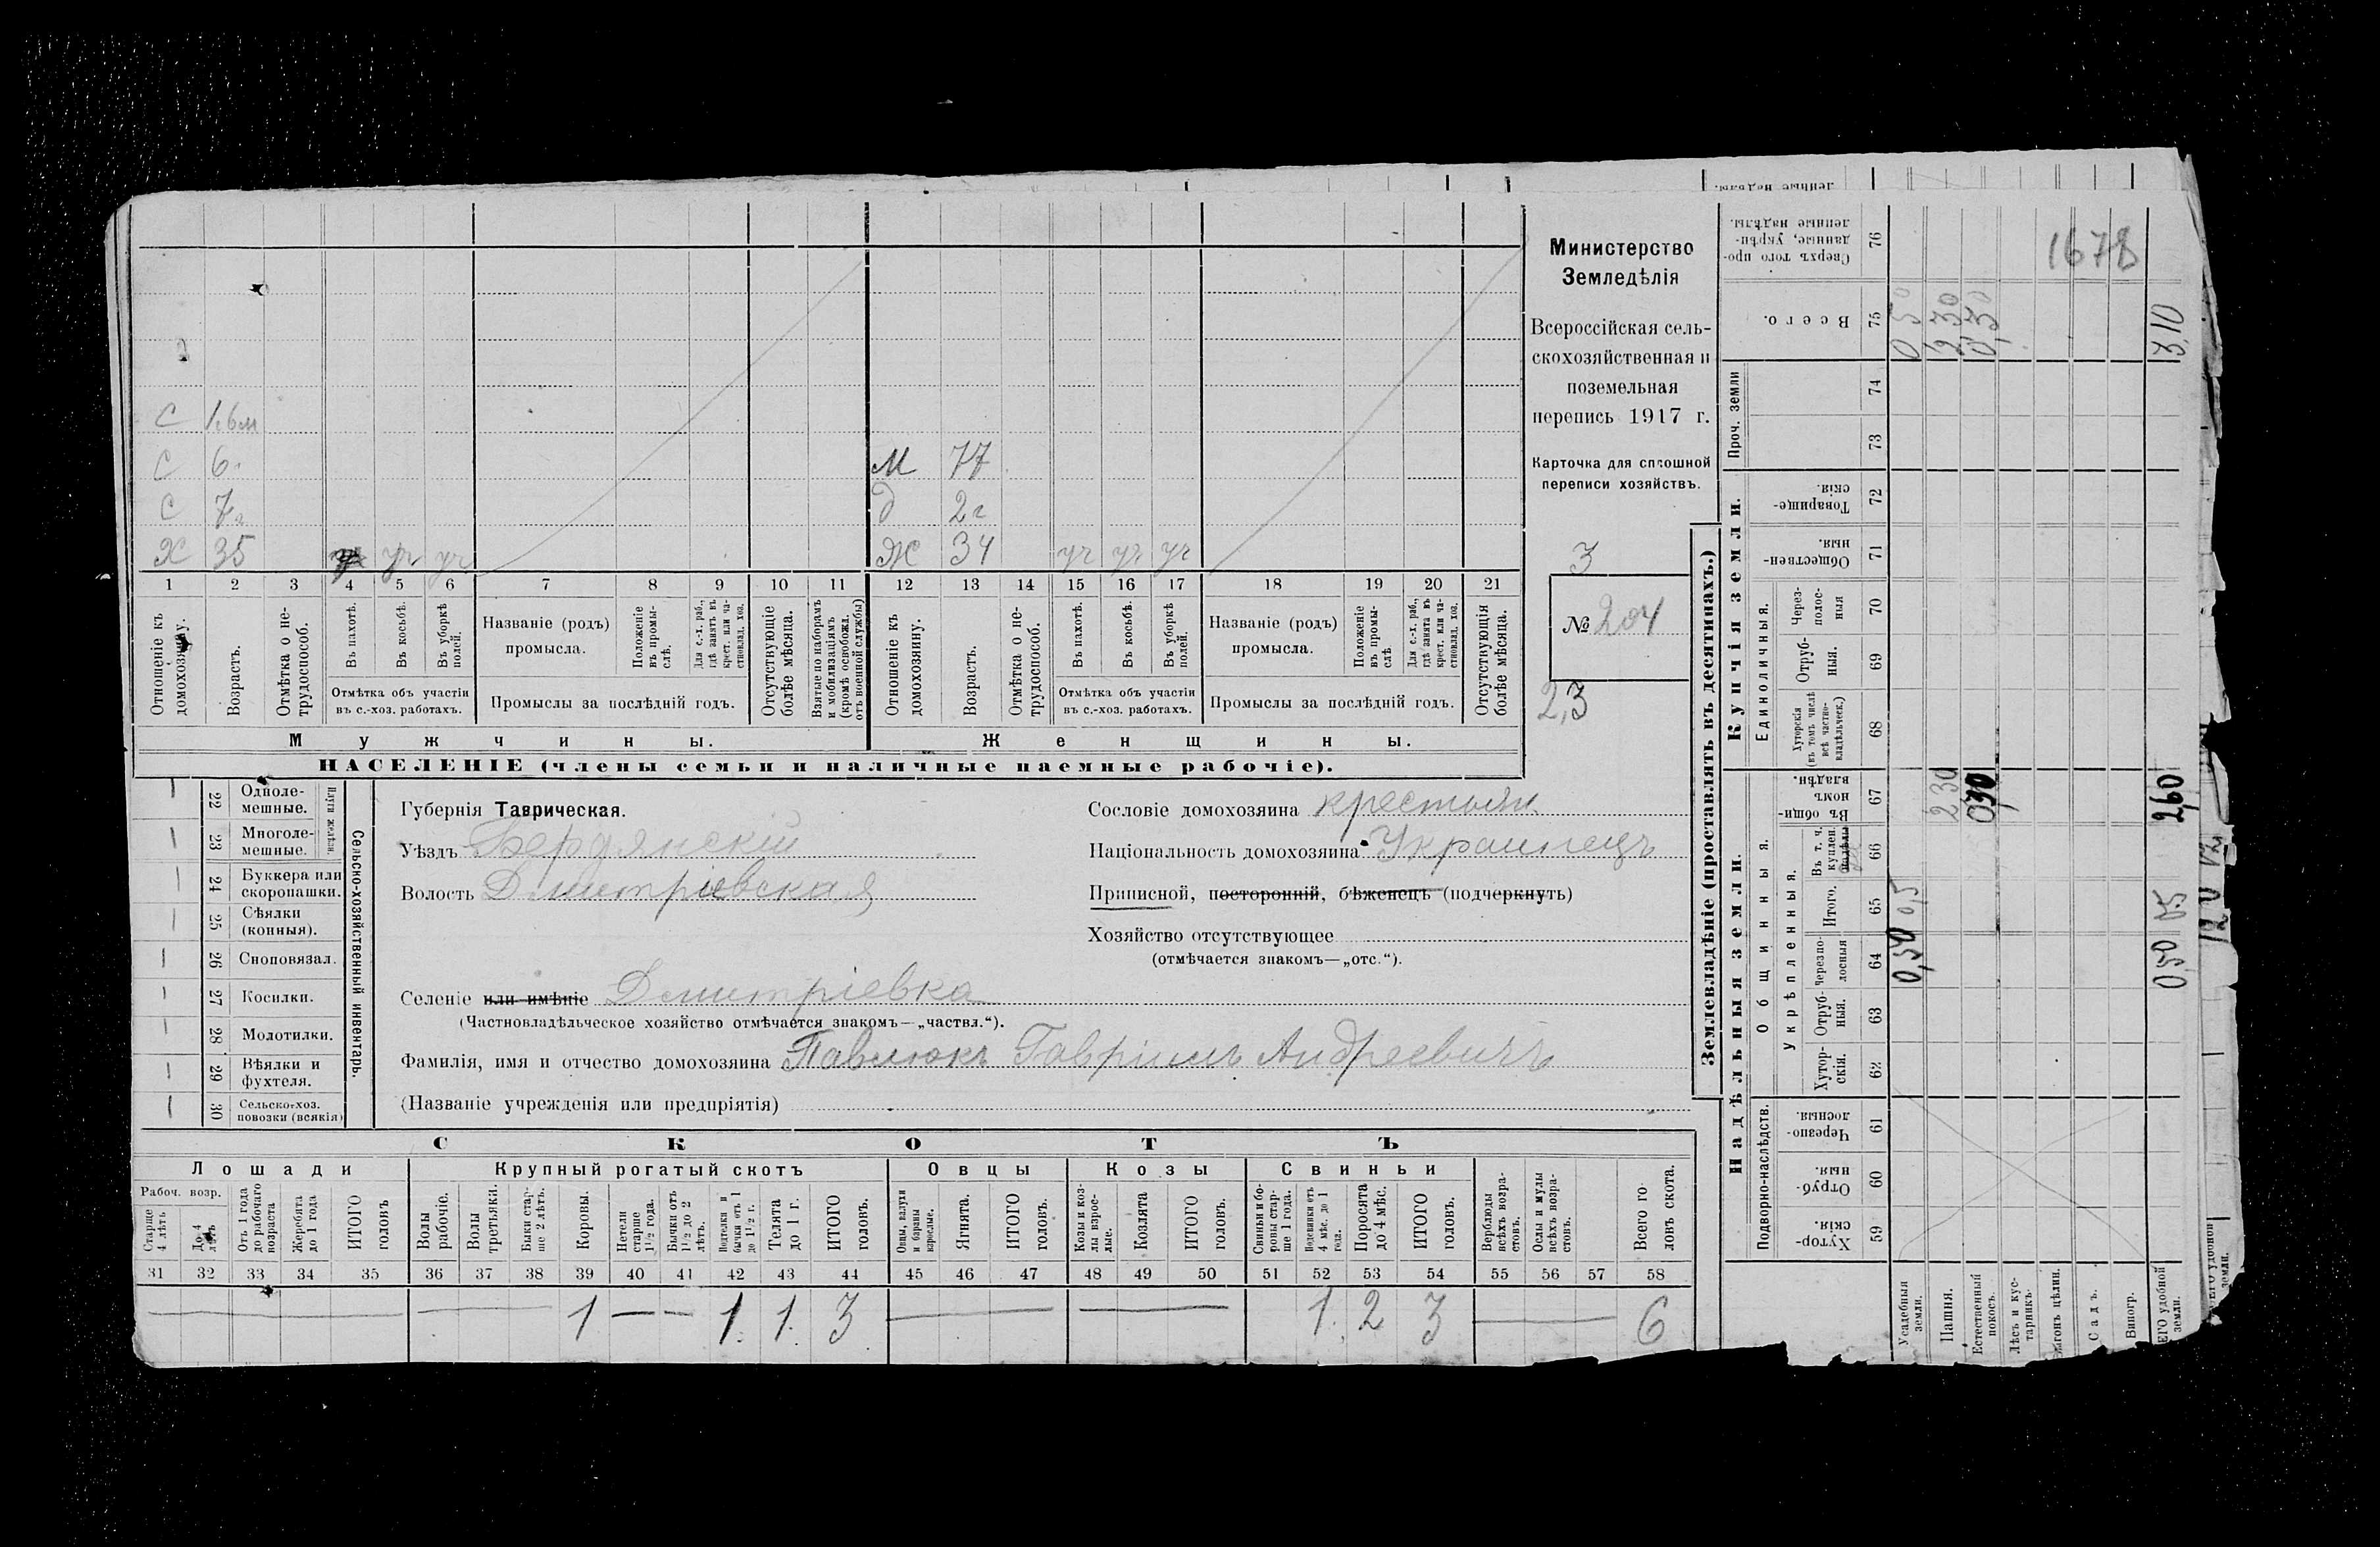 Министерство
Земледѣлія
Всероссійская сель-
скохозяйственная и
поземельная
перепись 1917 г.
Карточка для сплошной
переписи хозяйствъ.
3
№ 204
2,3
С 1 г. 6 м
С 6. М 77
С 7 г Д 2 г
Х 35 уч уч уч Ж 34 уч уч уч
1 2 3 4 5 6 7 8 9 10 11 12 13 14 15 16 17 18 19 20 21
Отношеніе къ домохозяину.
Возрастъ.
Отмѣтка о не-трудоспособ.
Въ пахотѣ.
Въ косьбѣ.
Въ уборкѣ полей.
Отмѣтка объ участіи въ с.-хоз. работахъ.
Названіе (родъ) промысла.
Положеніе въ промы-слѣ.
Для с.-х. раб., гдѣ занятъ въ крест. или ча-стновлад. хоз.
Промыслы за послѣдній годъ.
Отсутствующіе болѣе мѣсяца.
Взятые по наборамъ и мобилизаціямъ (кромѣ освобожд. отъ военной службы)
Отношеніе къ домохозяину.
Возрастъ.
Отмѣтка о не-трудоспособ.
Въ пахотѣ.
Въ косьбѣ.
Въ уборкѣ полей.
Отмѣтка объ участіи въ с.-хоз. работахъ.
Названіе (родъ) промысла.
Положеніе въ промы-слѣ
Для с.-х. раб., гдѣ занята въ крест. или ча-стновлад. хоз.
Промыслы за послѣдній годъ.
Отсутствующія болѣе мѣсяца.
Мужчины. Женщины.
НАСЕЛЕНІЕ (члены семьи и наличные наемные рабочіе).
Сельско-хозяйственный инвентарь.
Плуги желѣзн.
22 Одноле-мешные. —
23 Многоле-мешные. —
24 Буккера или скоропашки. —
25 Сѣялки (конныя). —
26 Сноповязал. —
27 Косилки. —
28 Молотилки. —
29 Вѣялки и фухтеля. —
30 Сельско-хоз. повозки (всякія) —
Губернія Таврическая.
Уѣздъ Бердянскій
Волость Дмитріевская
Сословіе домохозяина крестьян
Національность домохозяина Украинецъ
Приписной, посторонній, бѣженецъ (подчеркнуть)
Хозяйство отсутствующее
(отмѣчается знакомъ—„отс.“).
Селеніе или имѣніе Дмитріевка
(Частновладѣльческое хозяйство отмѣчается знакомъ—„частвл.“).
Фамилія, имя и отчество домохозяина Павлюкъ Гавріилъ Андреевичъ
(Названіе учрежденія или предпріятія)
СКОТЪ
Лошади Крупный рогатый скотъ Овцы Козы Свиньи
Рабоч. возр.
Старше 4 лѣтъ
До 4 лѣтъ
Отъ 1 года до рабочаго возраста
Жеребята до 1 года
ИТОГО головъ
Волы рабочіе.
Волы третьяки.
Быки стар-ше 2 лѣтъ.
Коровы.
Нетели старше 1 1/2 года.
Бычки отъ 1 1/2 до 2 лѣтъ.
Подтелки и бычки отъ 1 до 1 1/2 г.
Телята до 1 г.
ИТОГО головъ.
Овцы, валухи и бараны взрослые.
Ягнята.
ИТОГО головъ.
Козы и коз-лы взрос-лые.
Козлята
ИТОГО головъ.
Свиньи и бо-ровы стар-ше 1 года.
Подсвинки отъ 4 мѣс. до 1 года.
Поросята до 4 мѣс.
ИТОГО головъ.
Верблюды всѣхъ возра-стовъ.
Ослы и мулы всѣхъ возра-стовъ.
Всего го-ловъ скота.
31 32 33 34 35 36 37 38 39 40 41 42 43 44 45 46 47 48 49 50 51 52 53 54 55 56 57 58
— — 1 — — 1. 1. 3 — — 1. 2 3 — 6
Землевладѣніе (проставлять въ десятинахъ.)
Надѣльныя земли. Купчія земли.
Подворно-наслѣдств. Общинныя. Укрѣпленныя. Единоличныя. Проч. земли
59 Хутор-скія.
60 Отруб-ныя.
61 Черезпо-лосныя.
62 Хутор-скія.
63 Отруб-ныя.
64 Черезпо-лосныя
65 Итого.
66 Въ т. ч. куплен. надѣлы
67 Въ общи-номъ владѣн.
68 Хуторскія (въ томъ числѣ всѣ частно-владѣльческ.)
69 Отруб-ныя.
70 Через-полос-ныя
71 Обществен-ныя.
72 Товарище-скія.
73
74
75 Всего.
76 Сверхъ того про-данные, укрѣп-ленные надѣлы.
1678
Усадебныя земли. 0,50 0,5 0 50
Пашня. 2 30 2 30
Естественный покосъ. 0,30 0,30
Лѣсъ и кус-тарникъ.
Выгонъ цѣлин.
Садъ.
Виногр.
ЕГО удобной земли. 0,50 0,5 2,60 3,10